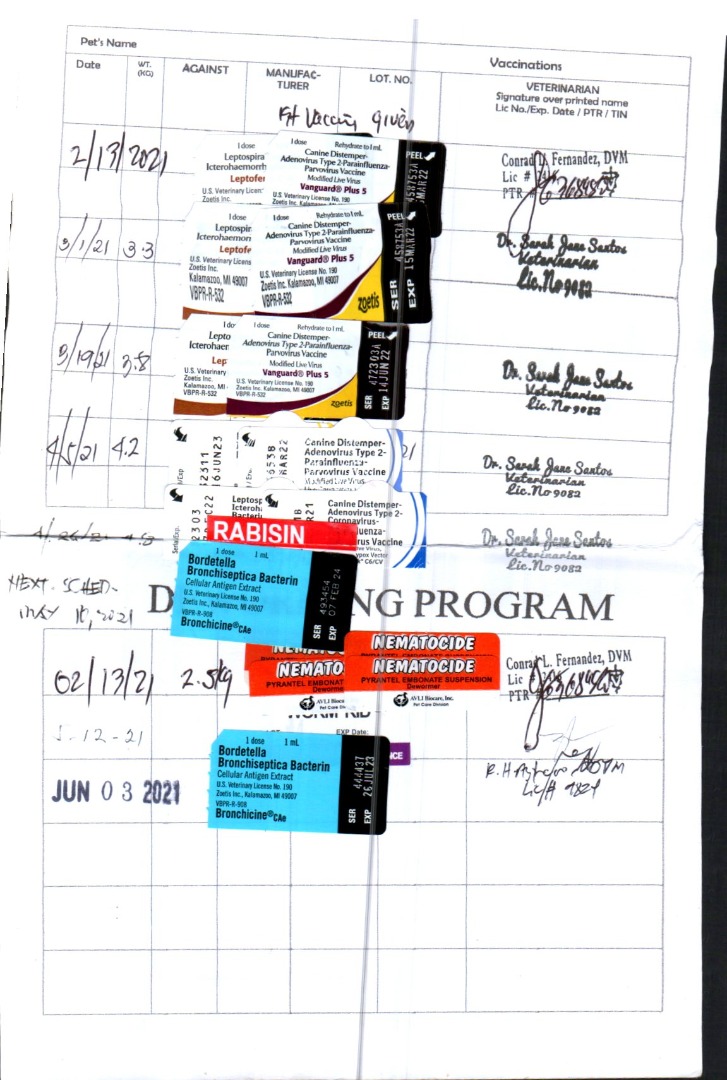 Pet's Name
Vaccinations
Date
WT. (KG)
AGAINST
MANUFAC-TURER
LOT. NO.
VETERINARIAN
Signature over printed name
Lic No./Exp. Date / PTR / TIN
Vaccine given
2/13/2021
1 dose
Leptospira
Icterohaemorrh
Leptofer
U.S. Veterinary Licens
Zoetis Inc.
1 dose Rehydrate to 1 mL
Canine Distemper-
Adenovirus Type 2-Parainfluenza-
Parvovirus Vaccine
Modified Live Virus
Vanguard® Plus 5
U.S. Veterinary License No. 190
Zoetis Inc. Kalamazoo,
PEEL
458753A
MAR 22
Conrad L. Fernandez, DVM
Lic #
PTR
3/1/21
3.3
1 dose
Leptospir
Icterohaemon
Leptofe
U.S. Veterinary Licens
Zoetis Inc.
Kalamazoo, MI 49007
VBPR-R-532
1 dose Rehydrate to 1 mL
Canine Distemper-
Adenovirus Type 2-Parainfluenza-
Parvovirus Vaccine
Modified Live Virus
Vanguard® Plus 5
U.S. Veterinary License No. 190
Zoetis Inc.
Kalamazoo, MI 49007
VBPR-R-532
zoetis
PEEL
SER 458753A
EXP 15MAR 22
Dr. Sarah Jane Santos
Veterinarian
Lic.No 9082
3/19/21
3.8
1 do
Lepto
Icterohaer
Lep
U.S. Veterinary
Zoetis Inc.
Kalamazoo, MI
VBPR-R-532
1 dose Rehydrate to 1 mL
Canine Distemper-
Adenovirus Type 2-Parainfluenza-
Parvovirus Vaccine
Modified Live Virus
Vanguard® Plus 5
U.S. Veterinary License No. 190
Zoetis Inc.
Kalamazoo, MI 49007
VBPR-R-532
zoetis
PEEL
SER 472303A
EXP 14JUN 22
Dr. Sarah Jane Santos
Veterinarian
Lic.No 9082
4/5/21
4.2
32311
6JUN23
6538
MAR22
Canine Distemper-
Adenovirus Type 2-
Parainfluenza-
Parvovirus Vaccine
Modified Live Virus
21
Dr. Sarah Jane Santos
Veterinarian
Lic.No 9082
2303
Leptosp
Icteroh
Bacteri
Canine Distemper-
Adenovirus Type 2-
Coronavirus-
uenza-
us Vaccine
ve Virus,
ypox Vector
® C6/CV
RABISIN
Dr. Sarah Jane Santos
Veterinarian
Lic.No 9082
1 dose 1 mL
Bordetella
Bronchiseptica Bacterin
Cellular Antigen Extract
U.S. Veterinary License No. 190
Zoetis Inc., Kalamazoo, MI 49007
VBPR-R-908
Bronchicine®CAe
SER 493454
EXP 07 FEB 24
NEXT. SCHED-
MAY 10, 2021
D NG PROGRAM
02/13/21
2.5kg
NEMATO
NEMATOCIDE
NEMATO
PYRANTEL EMBONATE
Dewormer
AVLI Biocare
Pet Care Div
NEMATOCIDE
PYRANTEL EMBONATE SUSPENSION
Dewormer
AVLI Biocare, Inc.
Pet Care Division
Conrad L. Fernandez, DVM
Lic #
PTR
-12-21
WORM RID
EXP Date:
NCE
Lic# 9824
JUN 03 2021
1 dose 1 mL
Bordetella
Bronchiseptica Bacterin
Cellular Antigen Extract
U.S. Veterinary License No. 190
Zoetis Inc., Kalamazoo, MI 49007
VBPR-R-908
Bronchicine®CAe
SER 444437
EXP 26 JUL 23